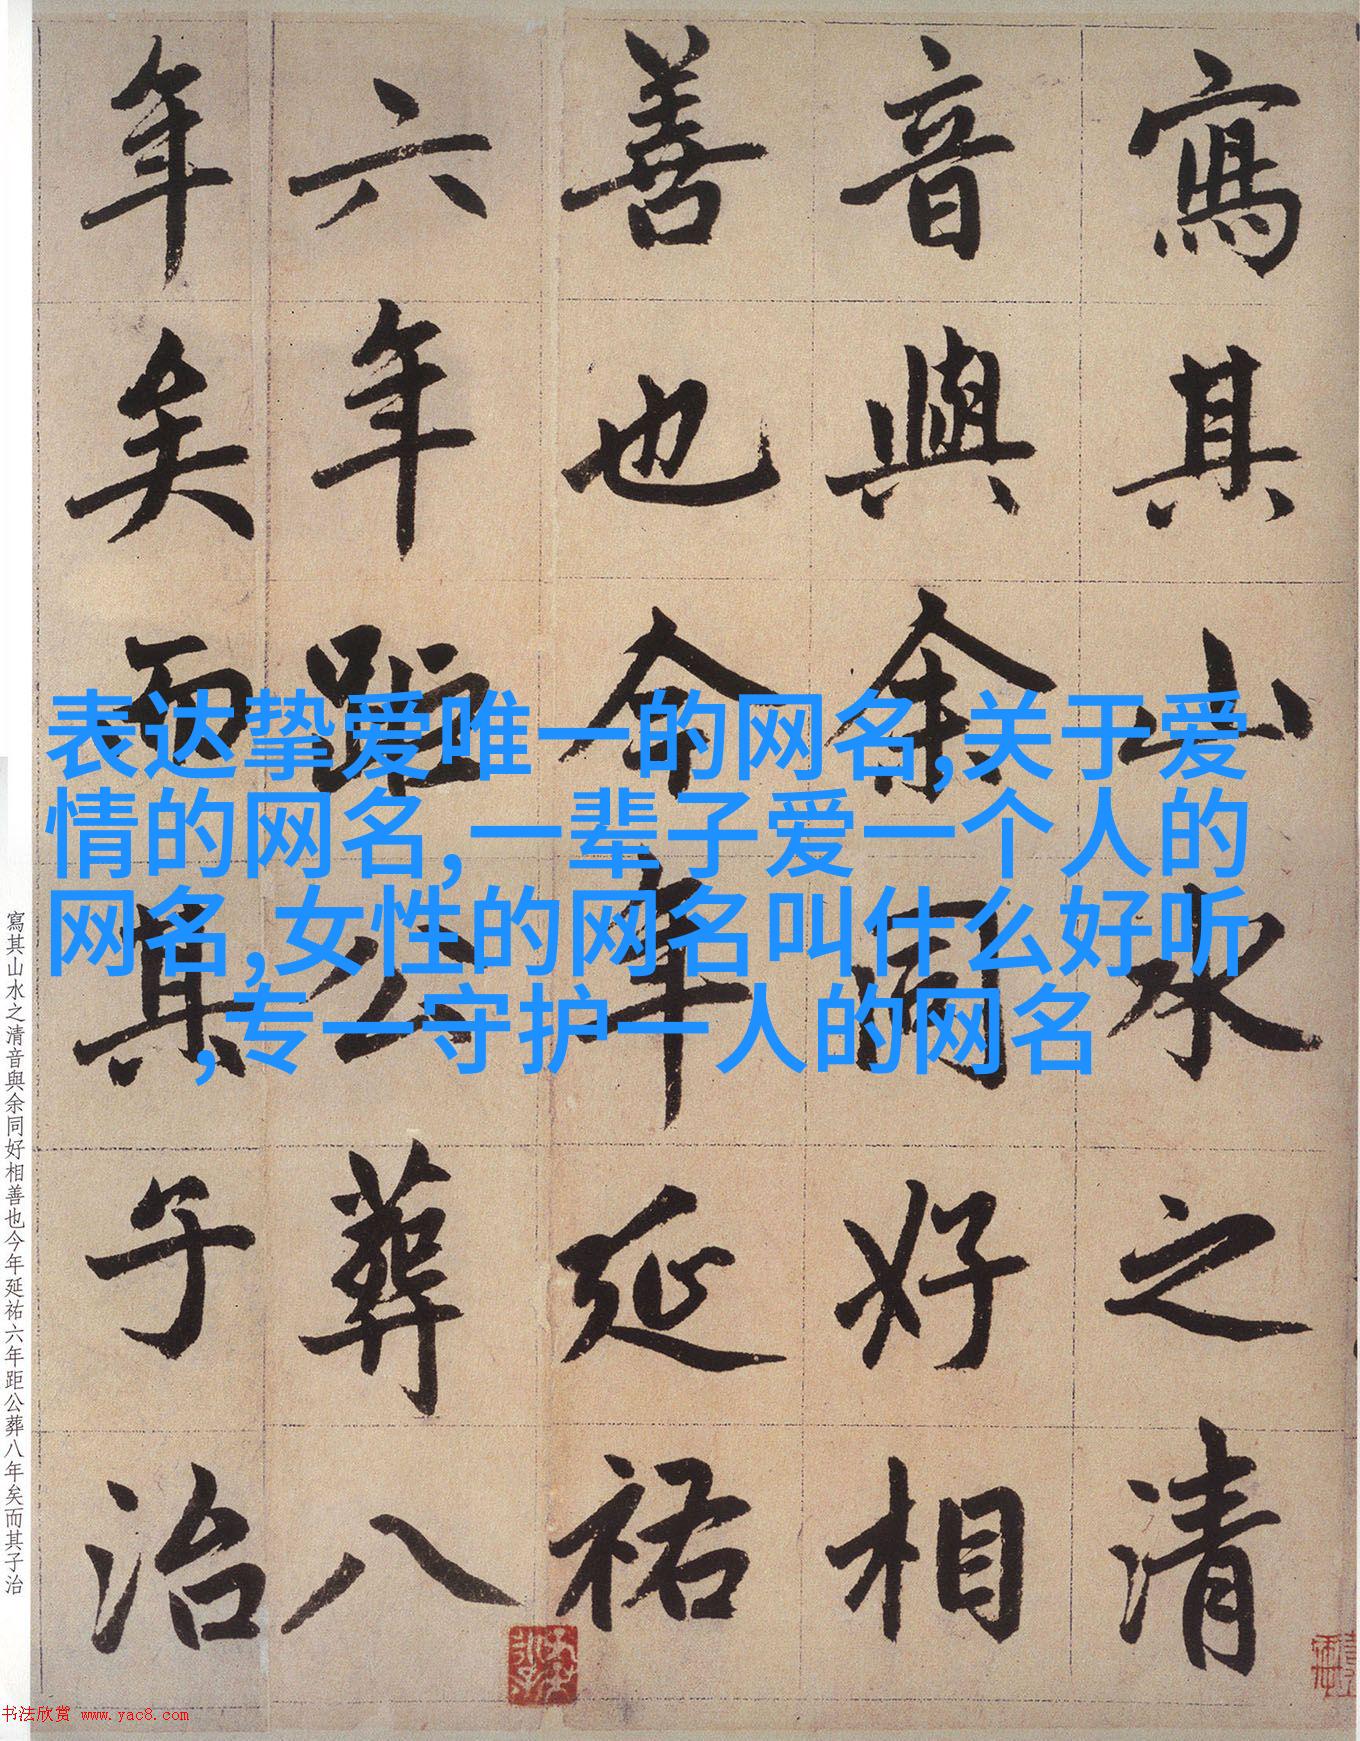 寫其山水之清
音與余同好相
善也今年延祐
六年距公葬八
年矣而其子治
表达挚爱唯一的网名,关于爱
情的网名,一辈子爱一个人的
网名,女性的网名叫什么好听
,专一守护一人的网名
寫其山水之清音與余同好相善也今年延祐六年距公葬八年矣而其子治
书法欣赏 www.yac8.com